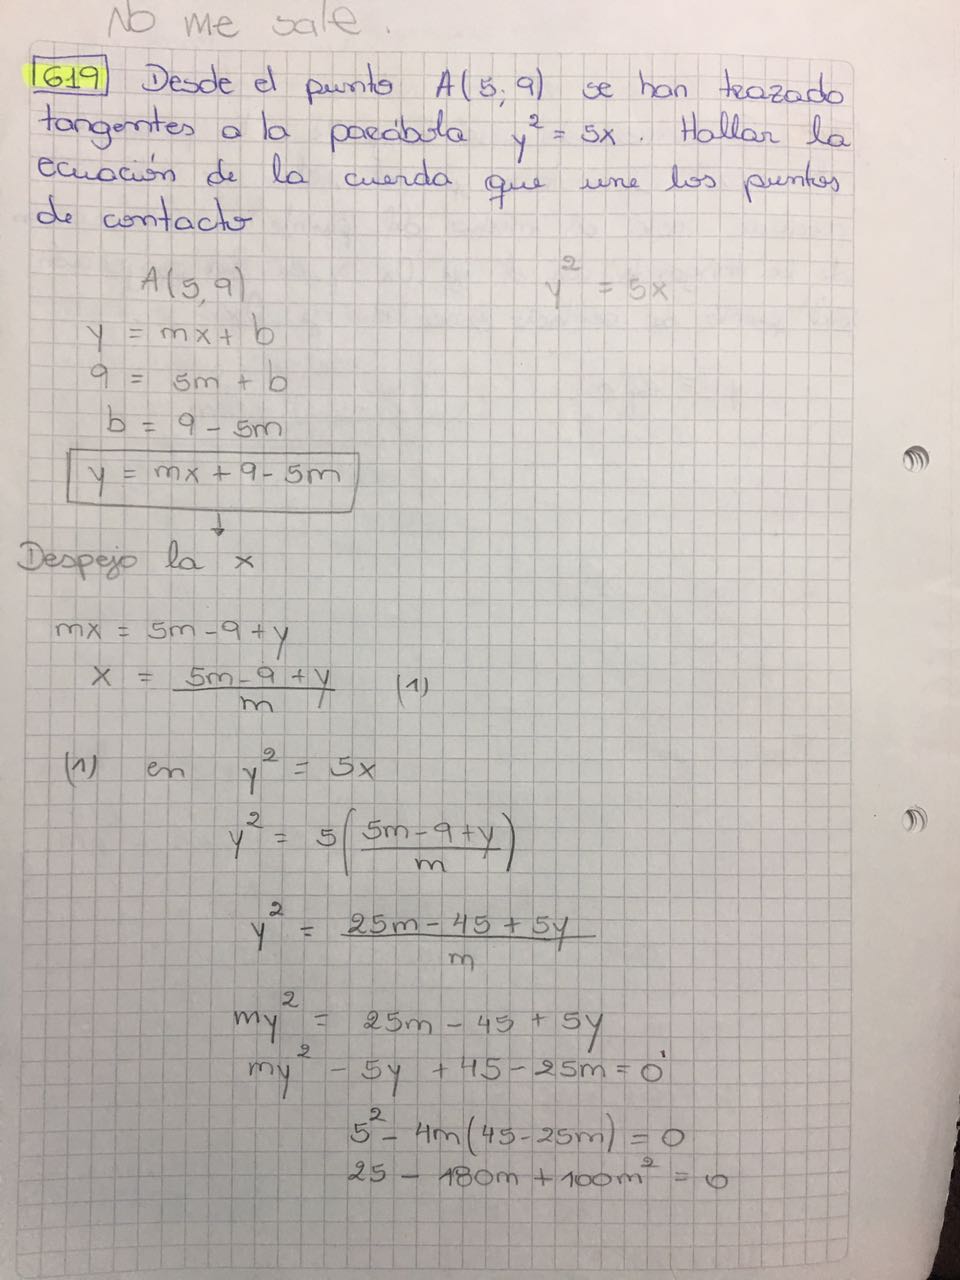 No me sale.
619 Desde el punto A(5,9) se han trazado
tangentes a la parábola y² = 5x. Hallar la
ecuación de la cuerda que une los puntos
de contacto
A(5,9) y² = 5x
y = mx + b
9 = 5m + b
b = 9 - 5m
y = mx + 9 - 5m
↓
Despejo la x
mx = 5m - 9 + y
x = (5m - 9 + y)/m (1)
(1) en y² = 5x
y² = 5((5m - 9 + y)/m)
y² = (25m - 45 + 5y)/m
my² = 25m - 45 + 5y
my² - 5y + 45 - 25m = 0
5² - 4m(45 - 25m) = 0
25 - 180m + 100m² = 0